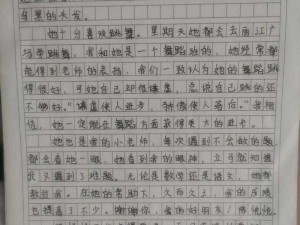 乌黑的头发。
她十分喜欢跳舞，星期天她都会去南江广
与学跳舞，我和她是一个舞蹈班的，她经常都
能得到老师的表扬，我们一致认为她的舞蹈跳
得很好，可她自己却很谦虚，总说自己跳的还
不够好。"谦虚使人进步，骄傲使人落后。"我相
信，她一定能在舞蹈方面获得更大的进步。
她也是我的小老师，每次遇到不会做的题
都会看她一眼，她看到我的眼神，立马就知道
我又遇到了难题。无论是数学还是语文，她都
教我。在她的帮助下，久而久之，我的成绩
也提高了不少。谢谢你，我的好朋友！